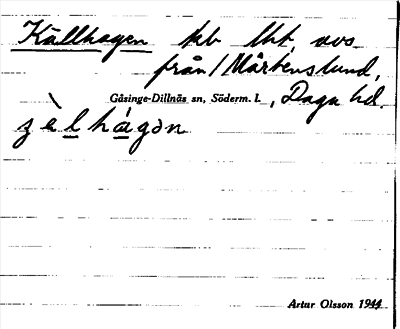 Källhagen hb lht, avs.
från / Mårtenslund,
Gåsinge-Dillnäs sn, Söderm. l. , Daga hd.
Artur Olsson 1944